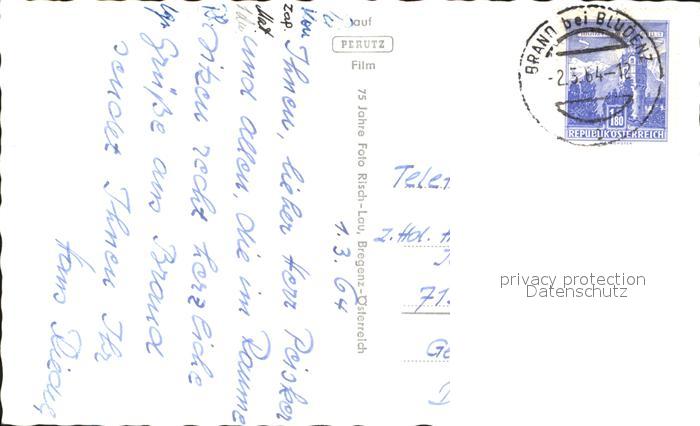 1.3.64
Ihnen, lieber Herr
und allen, die im Raume
sitzen recht herzliche
Grüße aus Brand
sendet Ihnen Ihr
Hans
auf
PERUTZ
Film
75 Jahre Foto Risch-Lau, Bregenz-Österreich
BRAND bei BLUDENZ
-2.3.64-12
1.80
REPUBLIK ÖSTERREICH
Telef
z.Hd. H
71.
Ge
privacy protection
Datenschutz